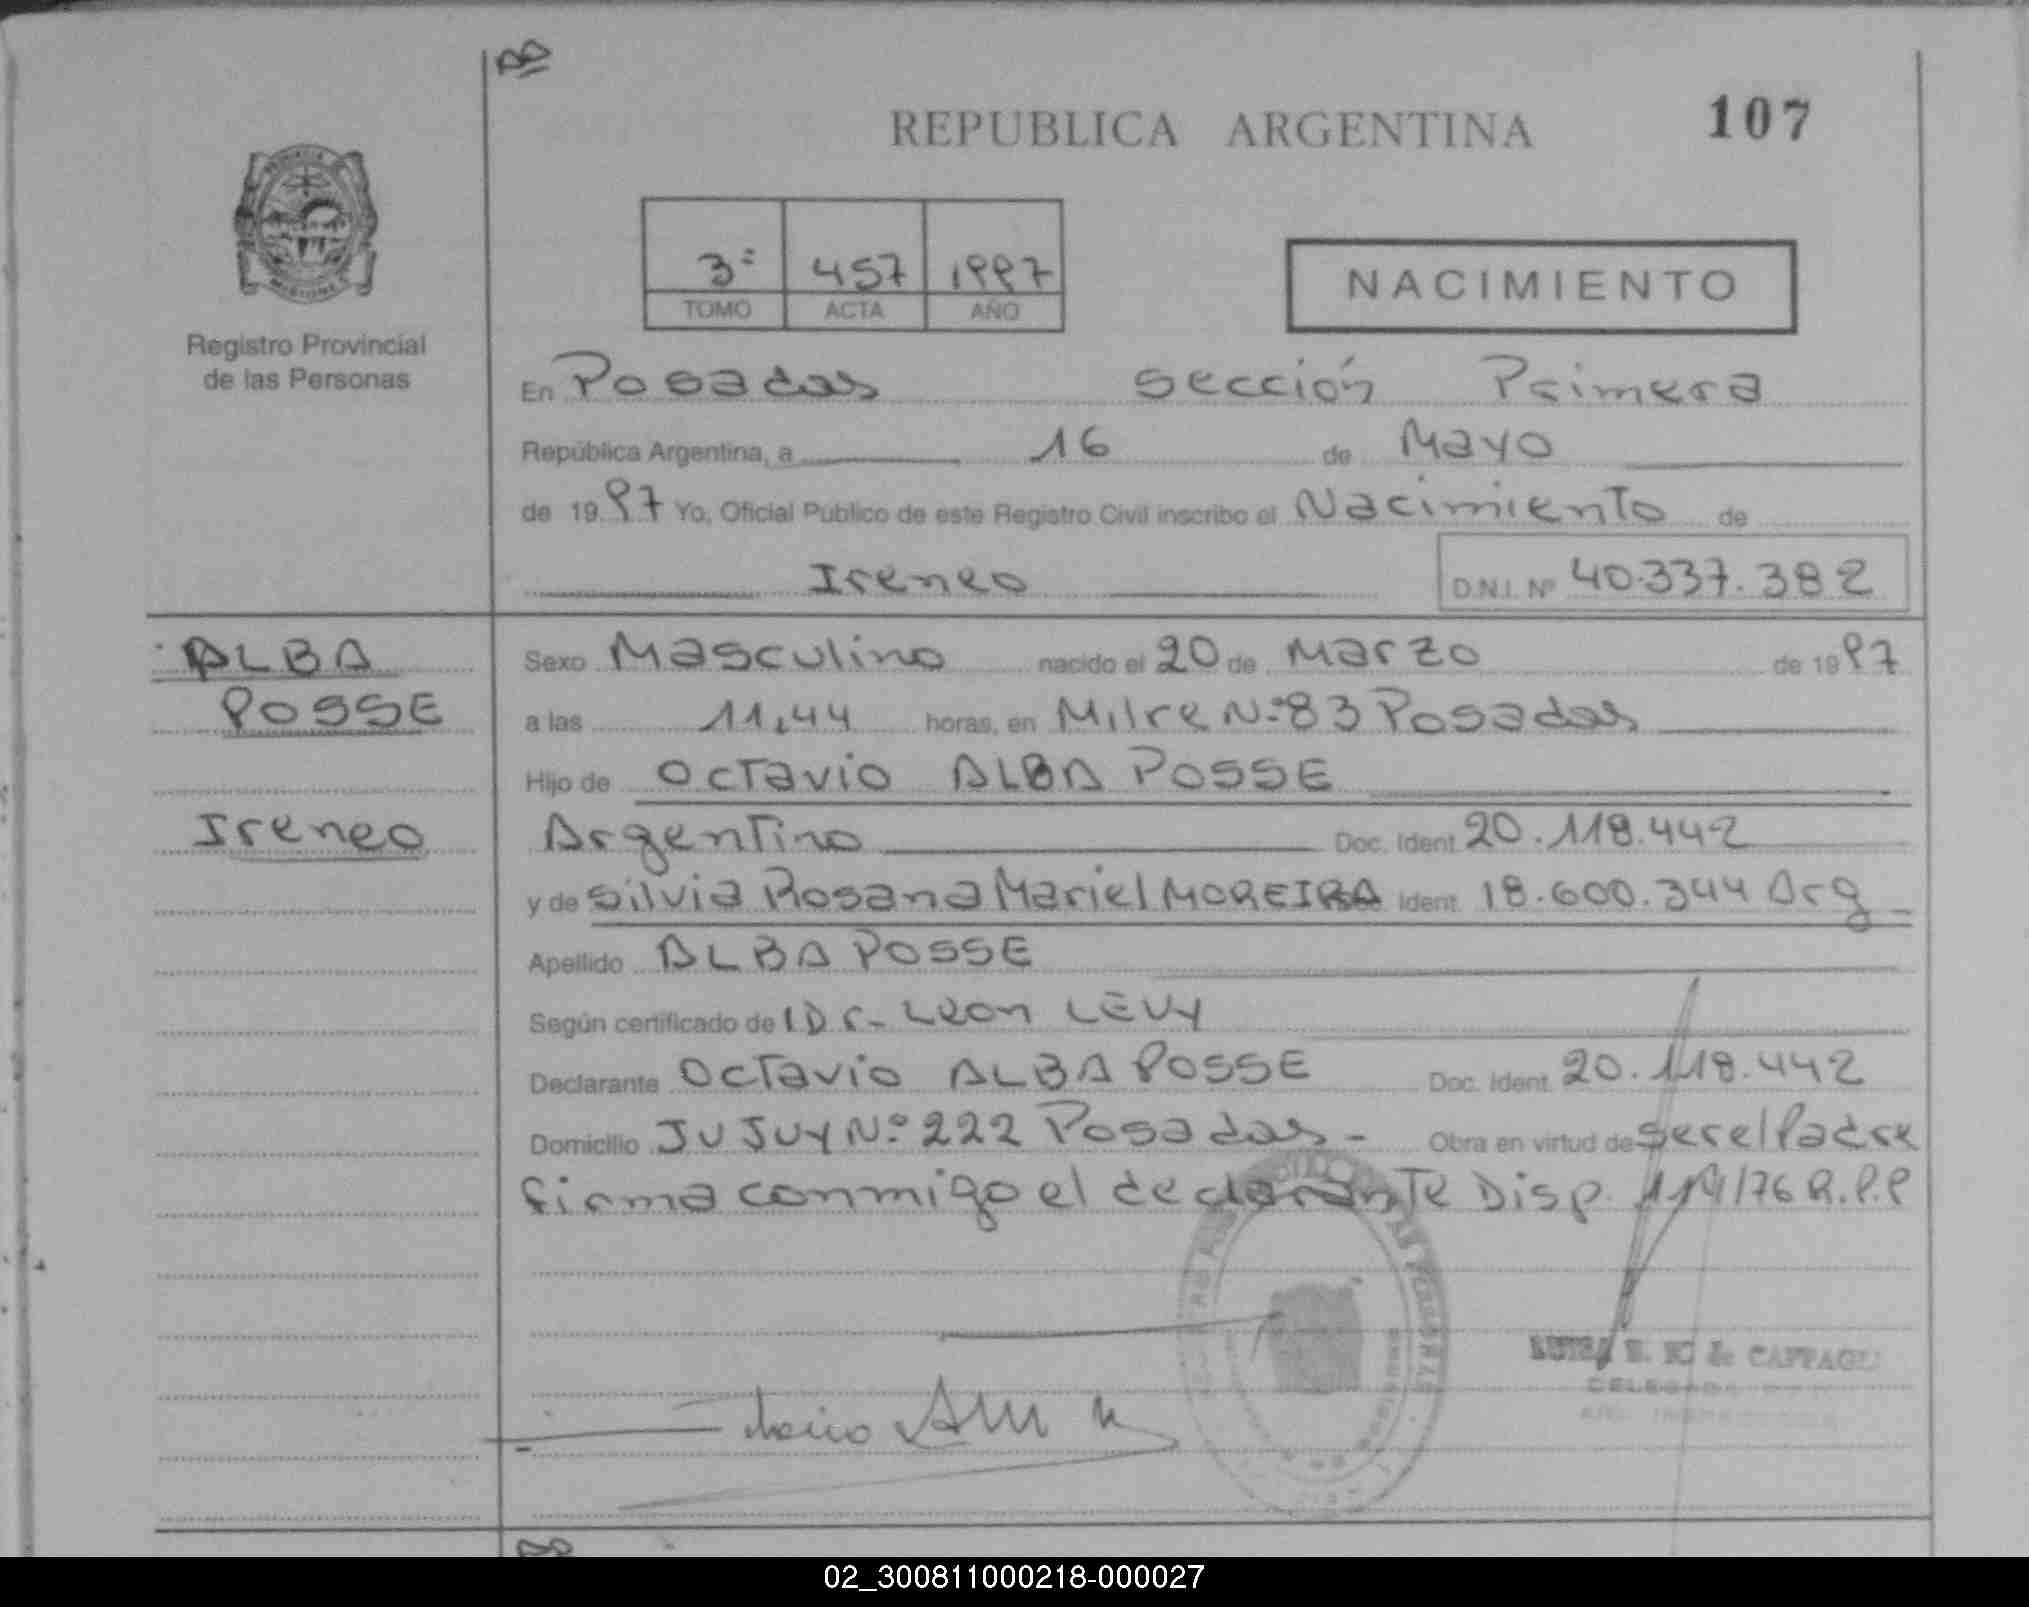 REPUBLICA ARGENTINA 107
Registro Provincial
de las Personas
3º 457 1997
TOMO ACTA AÑO
NACIMIENTO
En Posadas sección Primera
República Argentina, a 16 de Mayo
de 1997 Yo, Oficial Público de este Registro Civil inscribo el Nacimiento de
Ireneo D.N.I. Nº 40.337.382
ALBA
POSSE
Ireneo
Sexo Masculino nacido el 20 de Marzo de 1997
a las 11,44 horas, en Mitre Nº 83 Posadas
Hijo de Octavio ALBA POSSE
Argentino Doc. Ident. 20.118.442
y de Silvia Rosana Mariel MOREIRA Ident. 18.600.344 Arg
Apellido ALBA POSSE
Según certificado de l Dr. Leon LEVY
Declarante Octavio ALBA POSSE Doc. Ident. 20.118.442
Domicilio JUJUY Nº 222 Posadas - Obra en virtud de ser el Padre
firma conmigo el declarante Disp. 114/76 R.P.P
DELEGADA
02_300811000218-000027